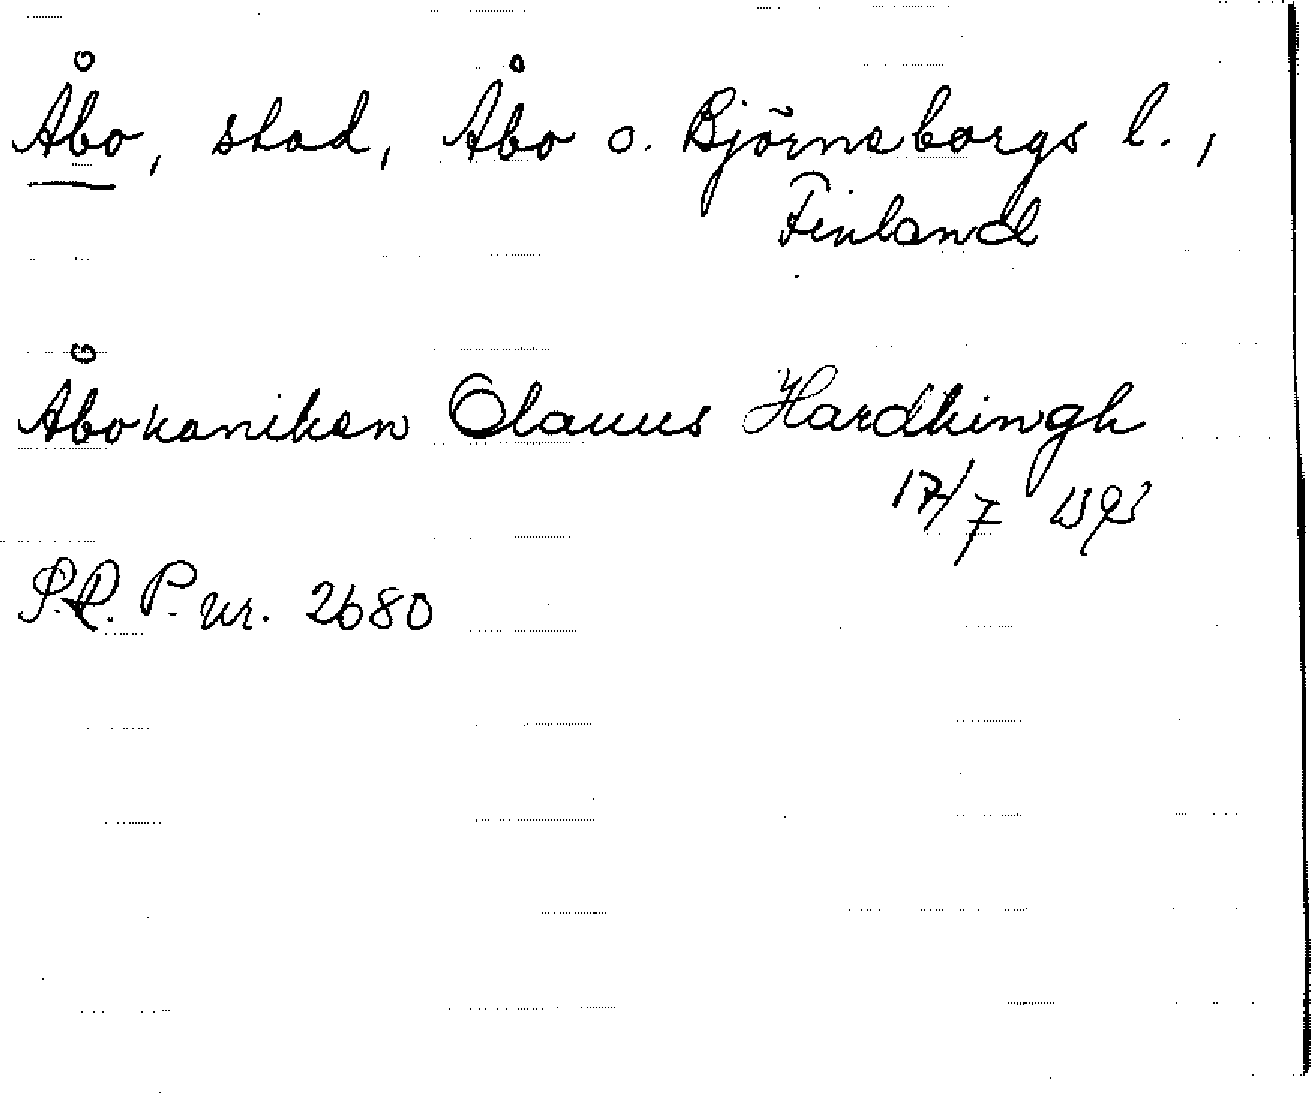 Åbo, stad, Åbo o. Björneborgs l.,
Finland
Åbokaniken Olauus Hardkingh
17/7 1393
S.R.P. nr. 2680